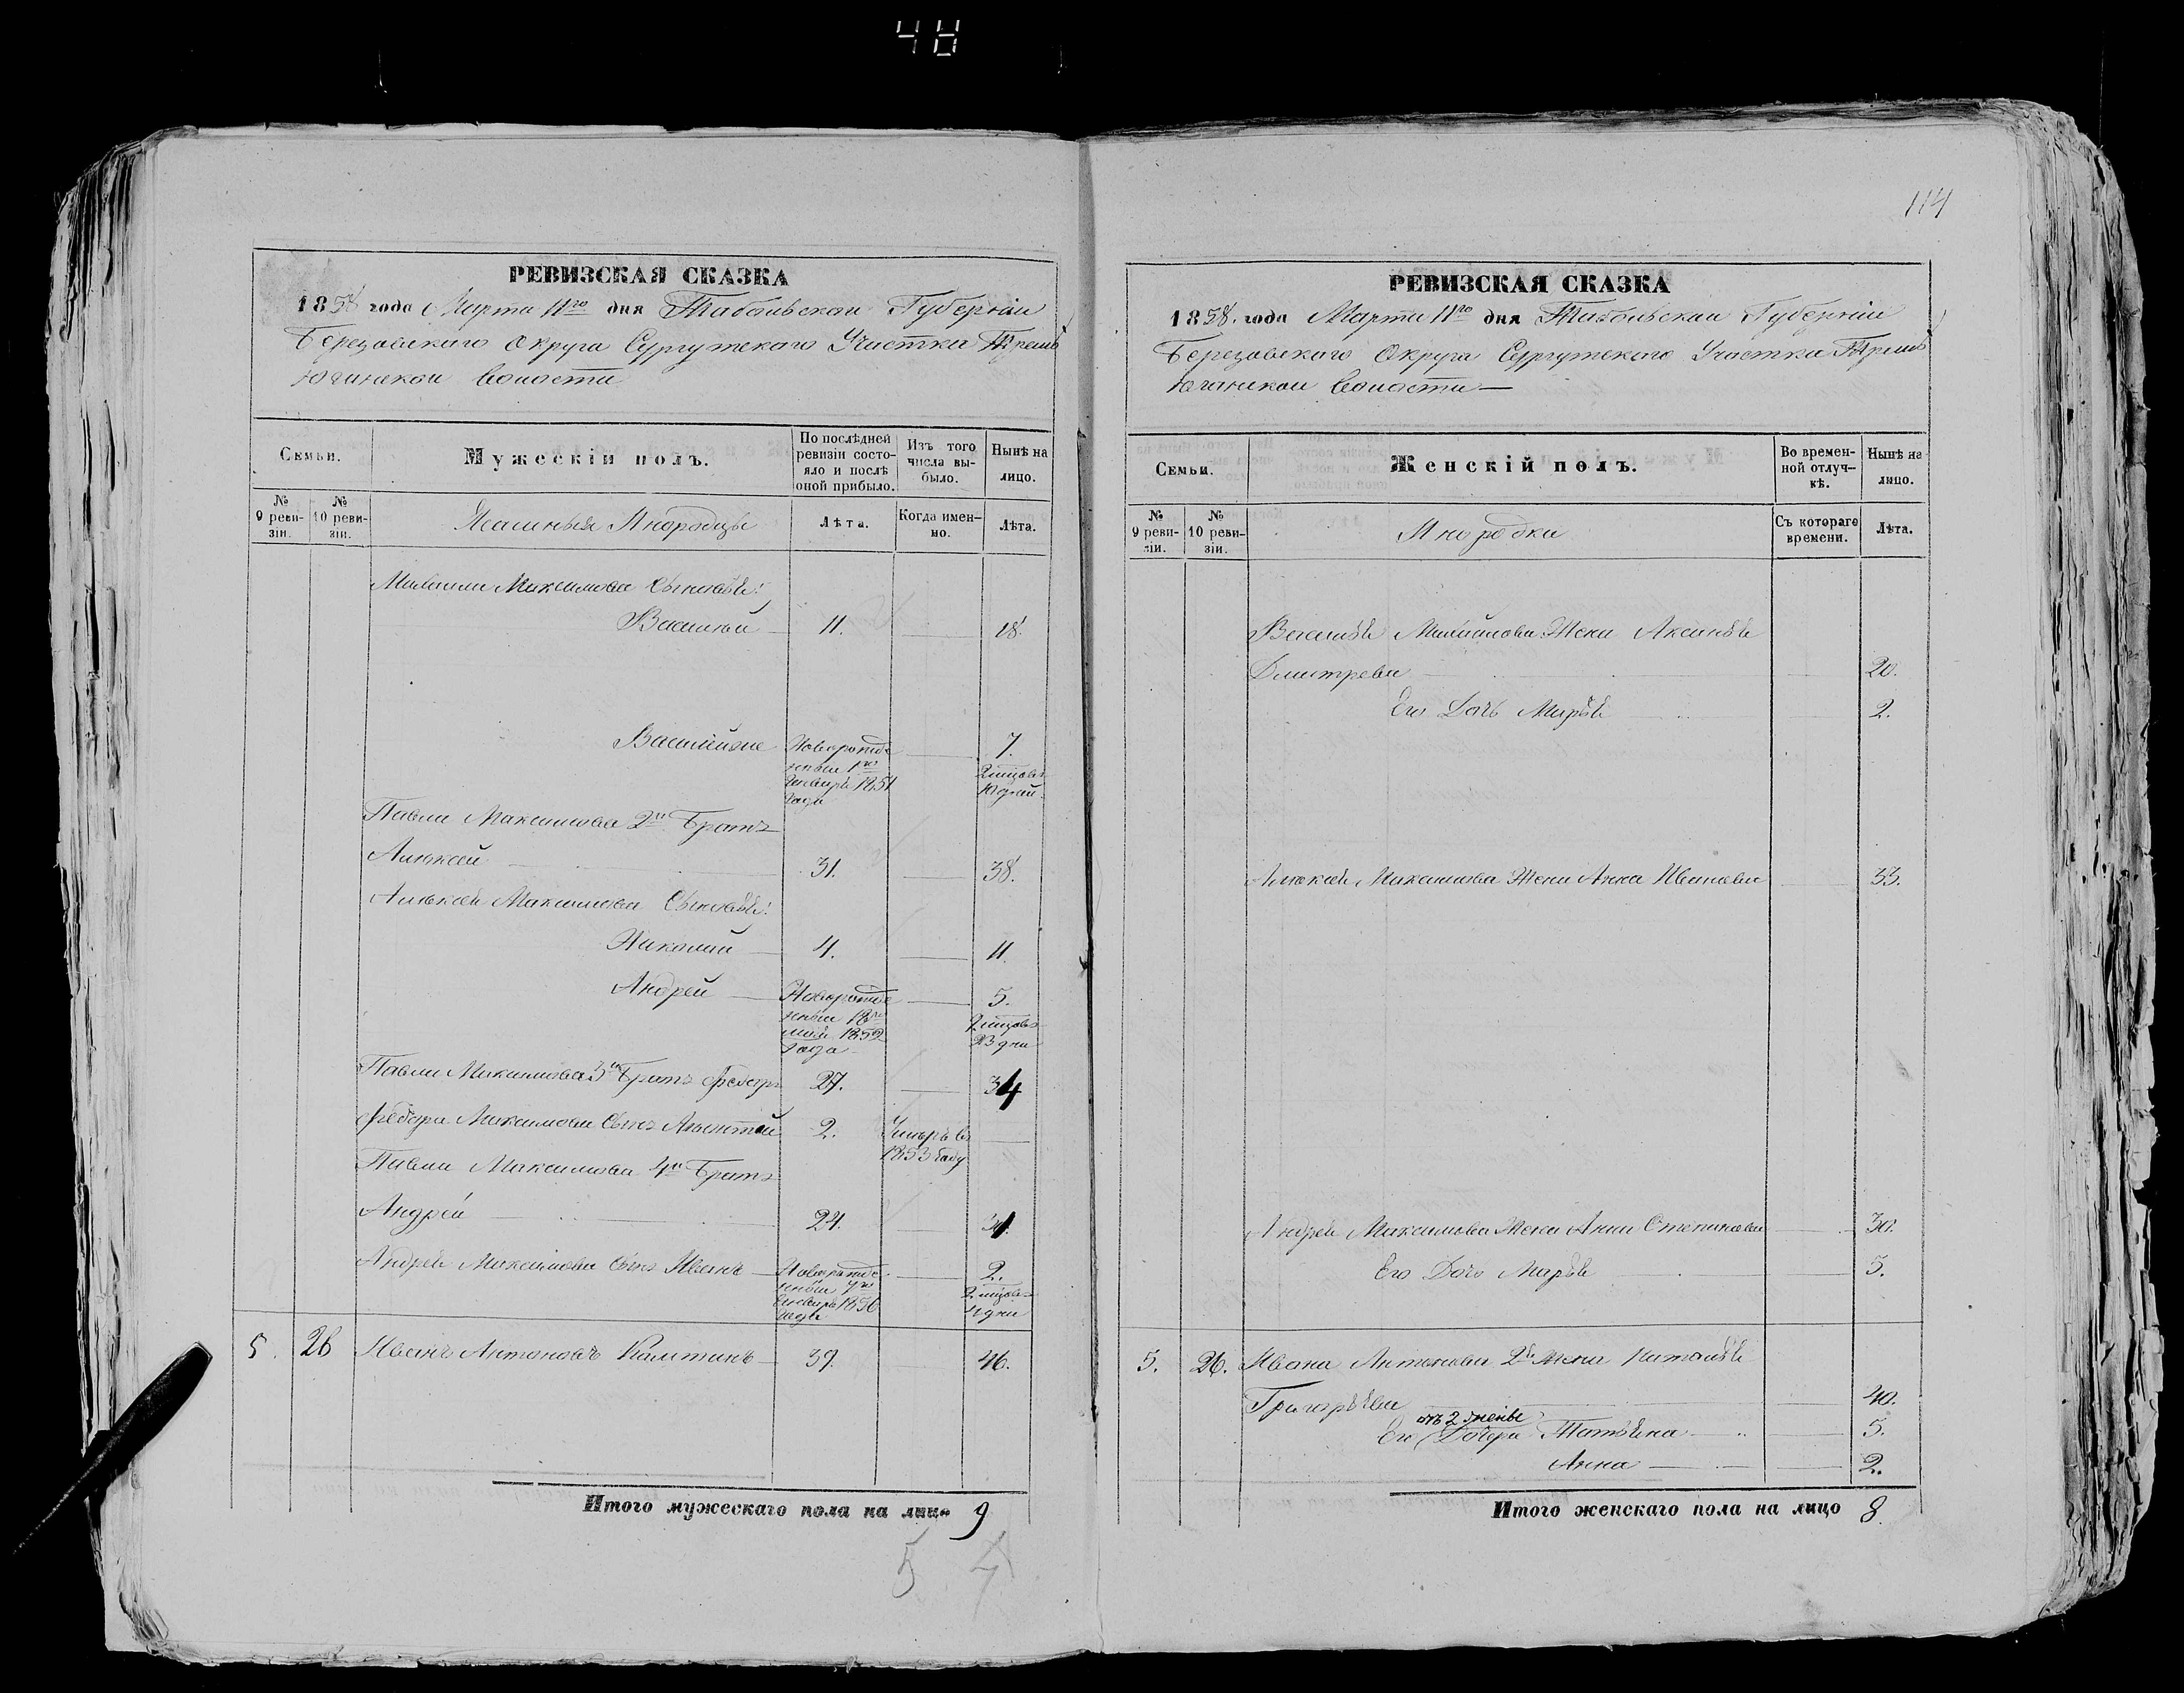 48
114
РЕВИЗСКАЯ СКАЗКА
1858 года Марта 11го дня Тобольской Губернiи
Березовскаго Округа Сургутскаго Участка Тремъ
Юганской волости
Семьи.
Мужескiй полъ.
По послѣдней ревизiи состояло и послѣ оной прибыло.
Изъ того числа выбыло.
Нынѣ на лицо.
№ 9 ревизiи.
№ 10 ревизiи.
Ясашныя Инородцы
Лѣта.
Когда именно.
Лѣта.
Максимова Сыновья:
Василiй 11. 18.
Василiй же Новорожденный 1го Генваря 1851 года 7. 2 мѣсяцовъ 10 дней.
Павла Максимова 2й Братъ
Алексѣй 31. 38.
Алексѣя Максимова Сыновья:
Николай 4. 11.
Андрей Новорожденный 18го мая 1852 года 5. 9 мѣсяцовъ 23 дни
Павла Максимова 3й Братъ Федоръ 27. 34
Федора Максимова Сынъ 2. Умеръ въ 1853 году
Павла Максимова 4й Братъ
Андрей 24. 31.
Андрея Максимова Сынъ Иванъ Новорожденный 7го Генваря 1856 года 2. 2 мѣсяцовъ 4 дни
5. 26 Иванъ Антоновъ Каюмтинъ 39. 46.
Итого мужескаго пола на лицо 9
5 4
РЕВИЗСКАЯ СКАЗКА
1858. года Марта 11го дня Тобольской Губернiи
Березовскаго Округа Сургутскаго Участка Тремъ
Юганской волости
Семьи.
Женскiй полъ.
Во временной отлучкѣ.
Нынѣ на лицо.
№ 9 ревизiи.
№ 10 ревизiи.
Инородки
Съ котораго времени.
Лѣта.
Василья Жена Аксинья
Дмитрева 20.
Его Дочь Марья 2.
Алексѣя Максимова Жена Анна Иванова 33.
Андрея Максимова Жена Анна Степанова 30.
Его Дочь Марья 5.
5. 26. Ивана Антонова 2я Жена Наталья
Григорьева 40.
отъ 2 жены
Его Дочери Татьяна 5.
Анна 2.
Итого женскаго пола на лицо 8.